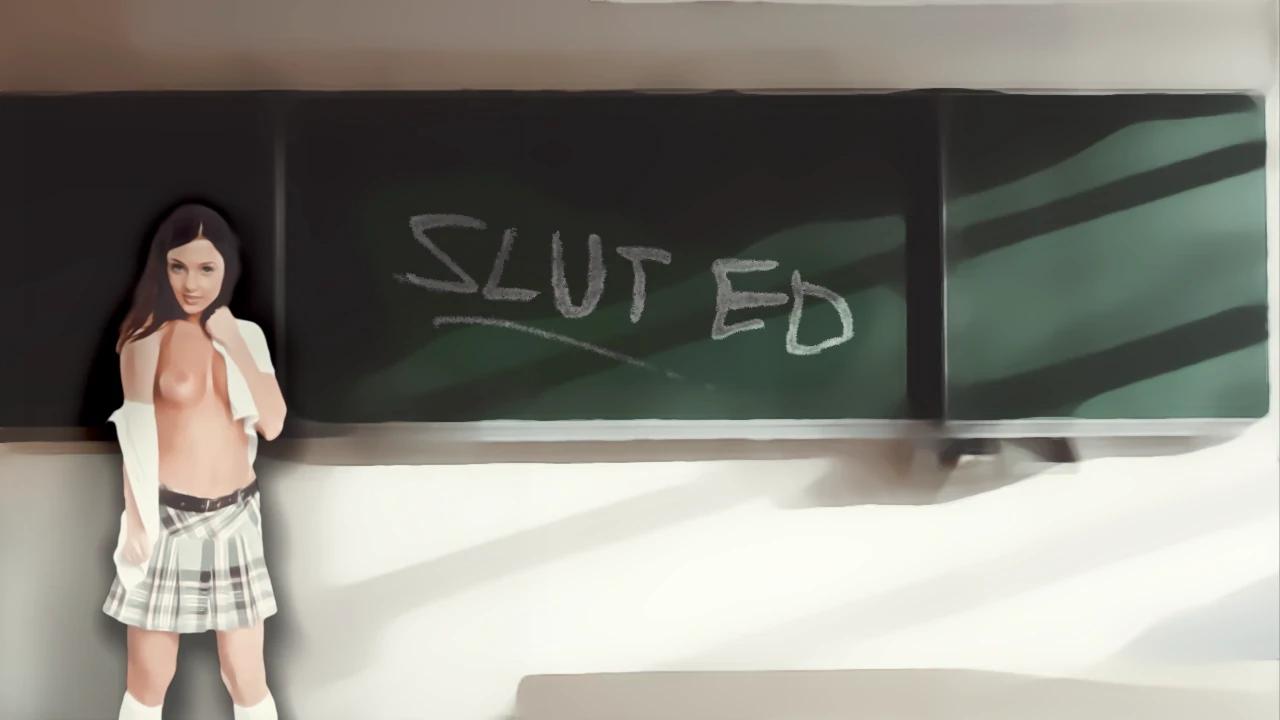 SLUT ED